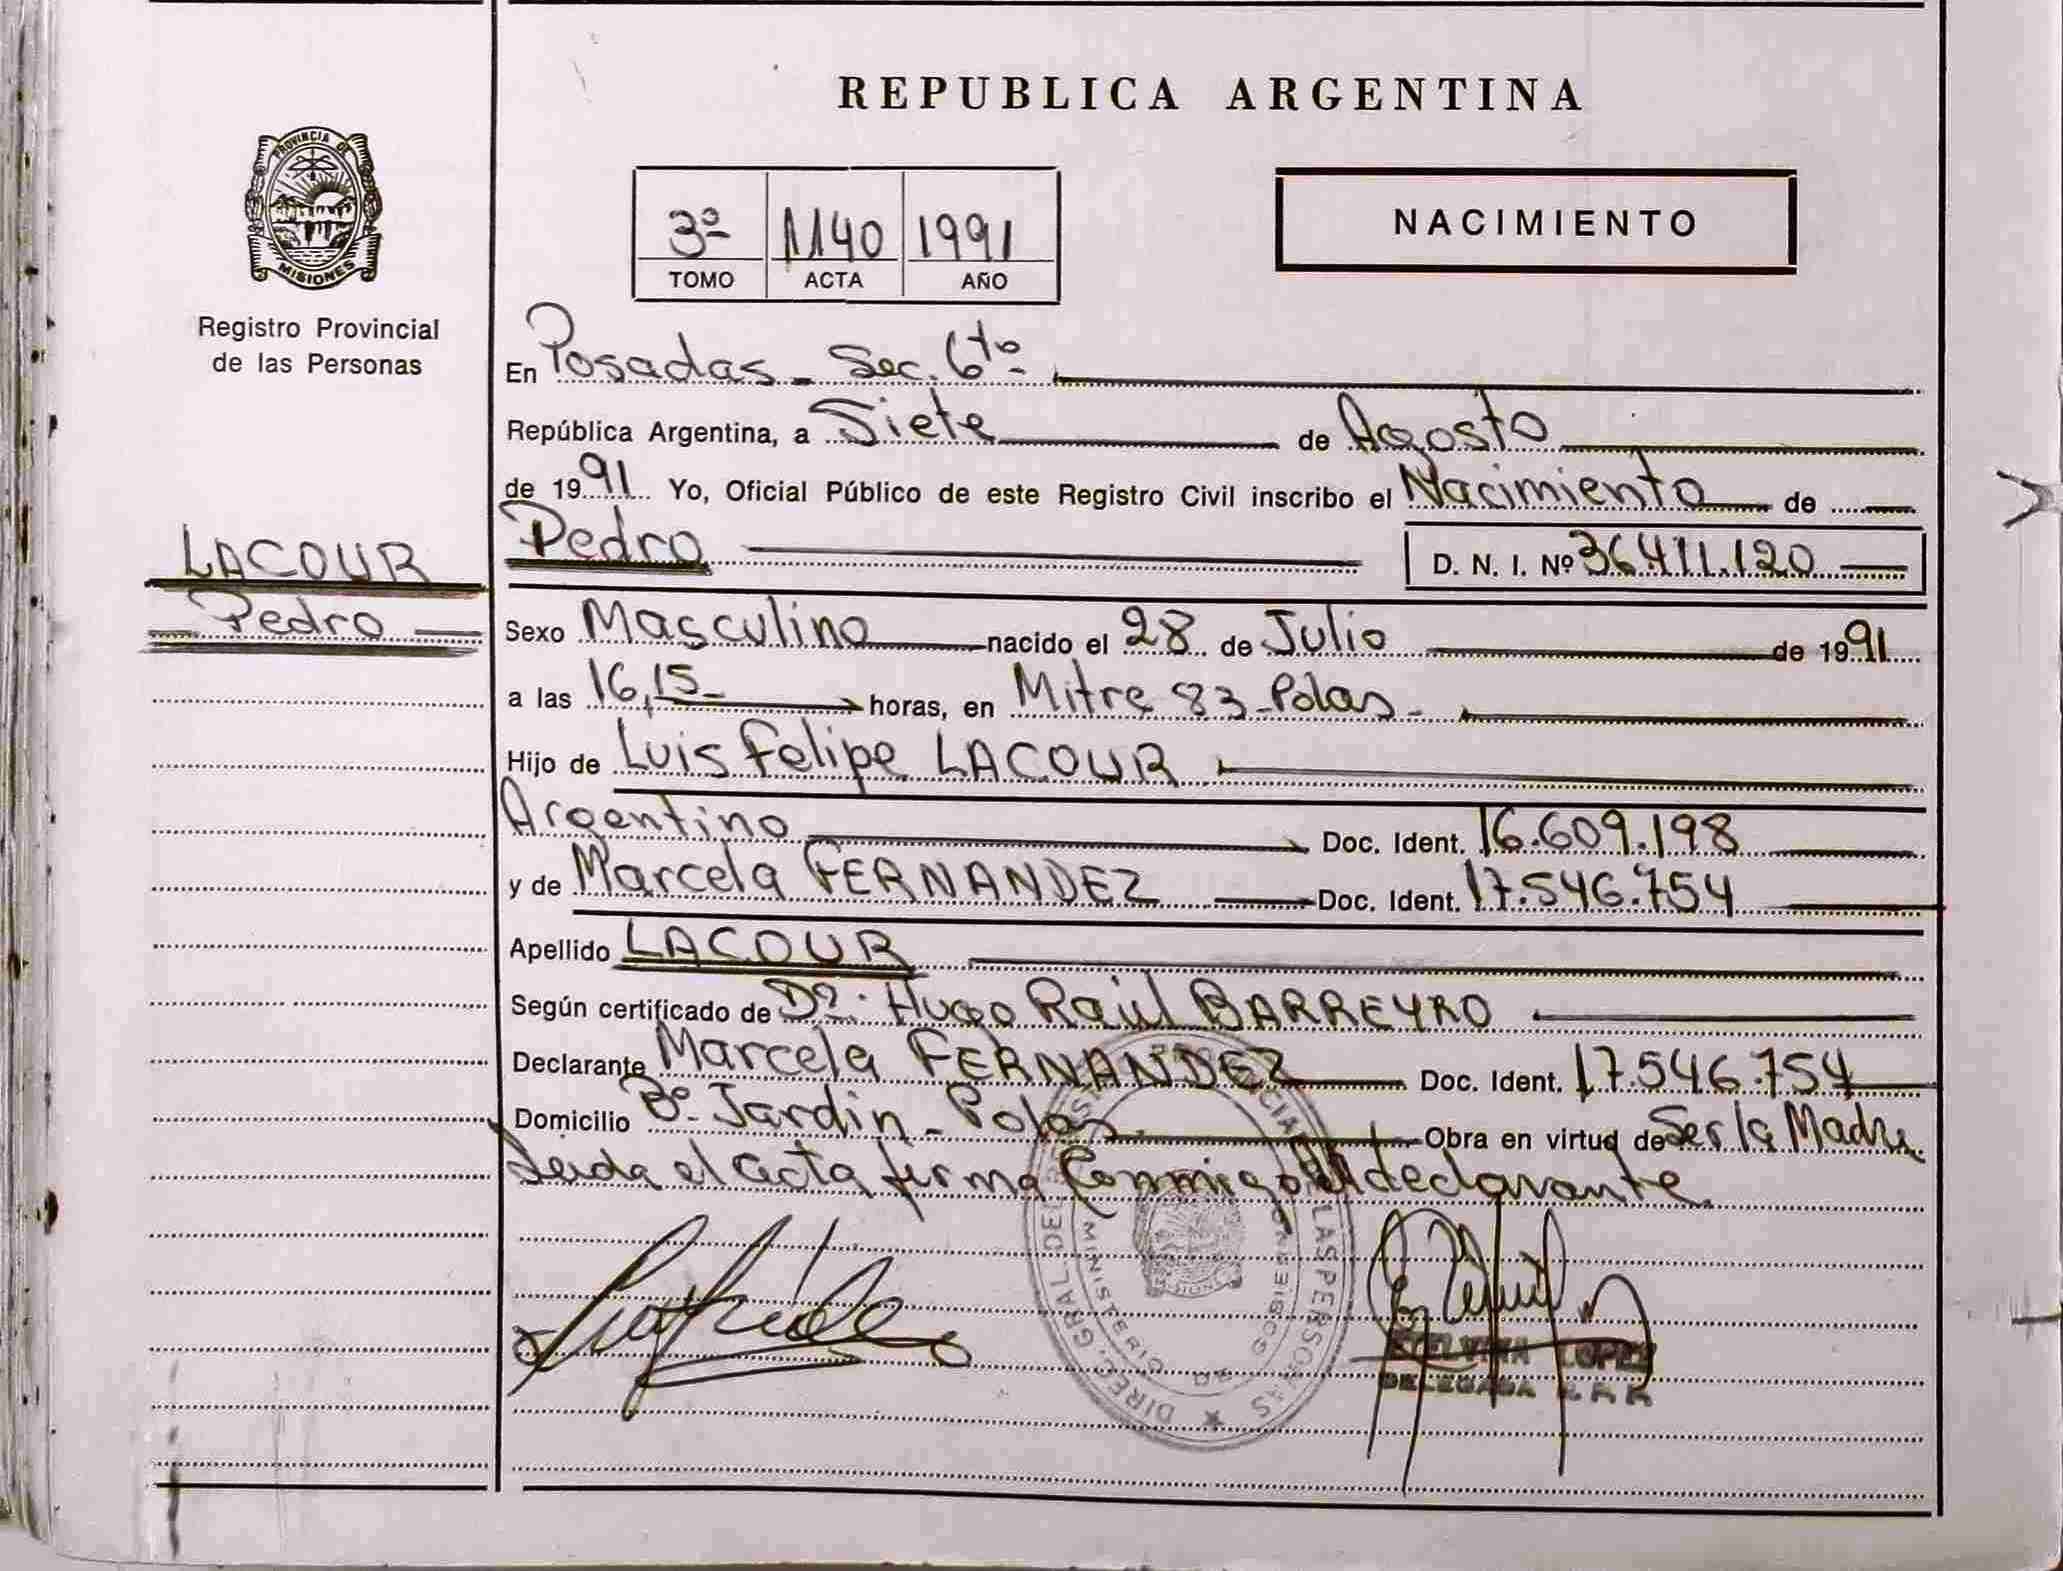 REPUBLICA ARGENTINA
PROVINCIA DE
MISIONES
Registro Provincial
de las Personas
3º 1140 1991
TOMO ACTA AÑO
NACIMIENTO
En Posadas - Sec. 6tº
República Argentina, a Siete de Agosto
de 1991 Yo, Oficial Público de este Registro Civil inscribo el Nacimiento de
LACOUR
Pedro
Pedro D. N. I. Nº 36.411.120
Sexo Masculino nacido el 28 de Julio de 1991
a las 16,15 horas, en Mitre 83 - Pdas -
Hijo de Luis Felipe LACOUR
Argentino Doc. Ident. 16.609.198
y de Marcela FERNANDEZ Doc. Ident. 17.546.754
Apellido LACOUR
Según certificado de Dº: Hugo Raúl BARREYRO
Declarante Marcela FERNANDEZ Doc. Ident. 17.546.754
Domicilio Bº. Jardin - Pdas Obra en virtud de Ser la Madre
Leida el acta firma Conmigo el declarante
DIREC. GRAL. DE LAS PERSONAS
MINISTERIO DE GOBIERNO
LOPEZ
DELEGADA